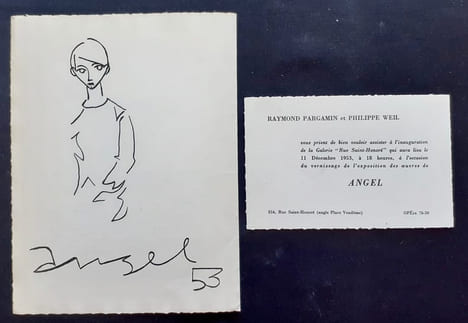 angel
53
RAYMOND PARGAMIN et PHILIPPE WEIL
vous prient de bien vouloir assister à l'inauguration
de la Galerie "Rue Saint-Honoré" qui aura lieu le
11 Décembre 1953, à 18 heures, à l'occasion
du vernissage de l'exposition des œuvres de
ANGEL
354, Rue Saint-Honoré (angle Place Vendôme)
OPÉra 76-50